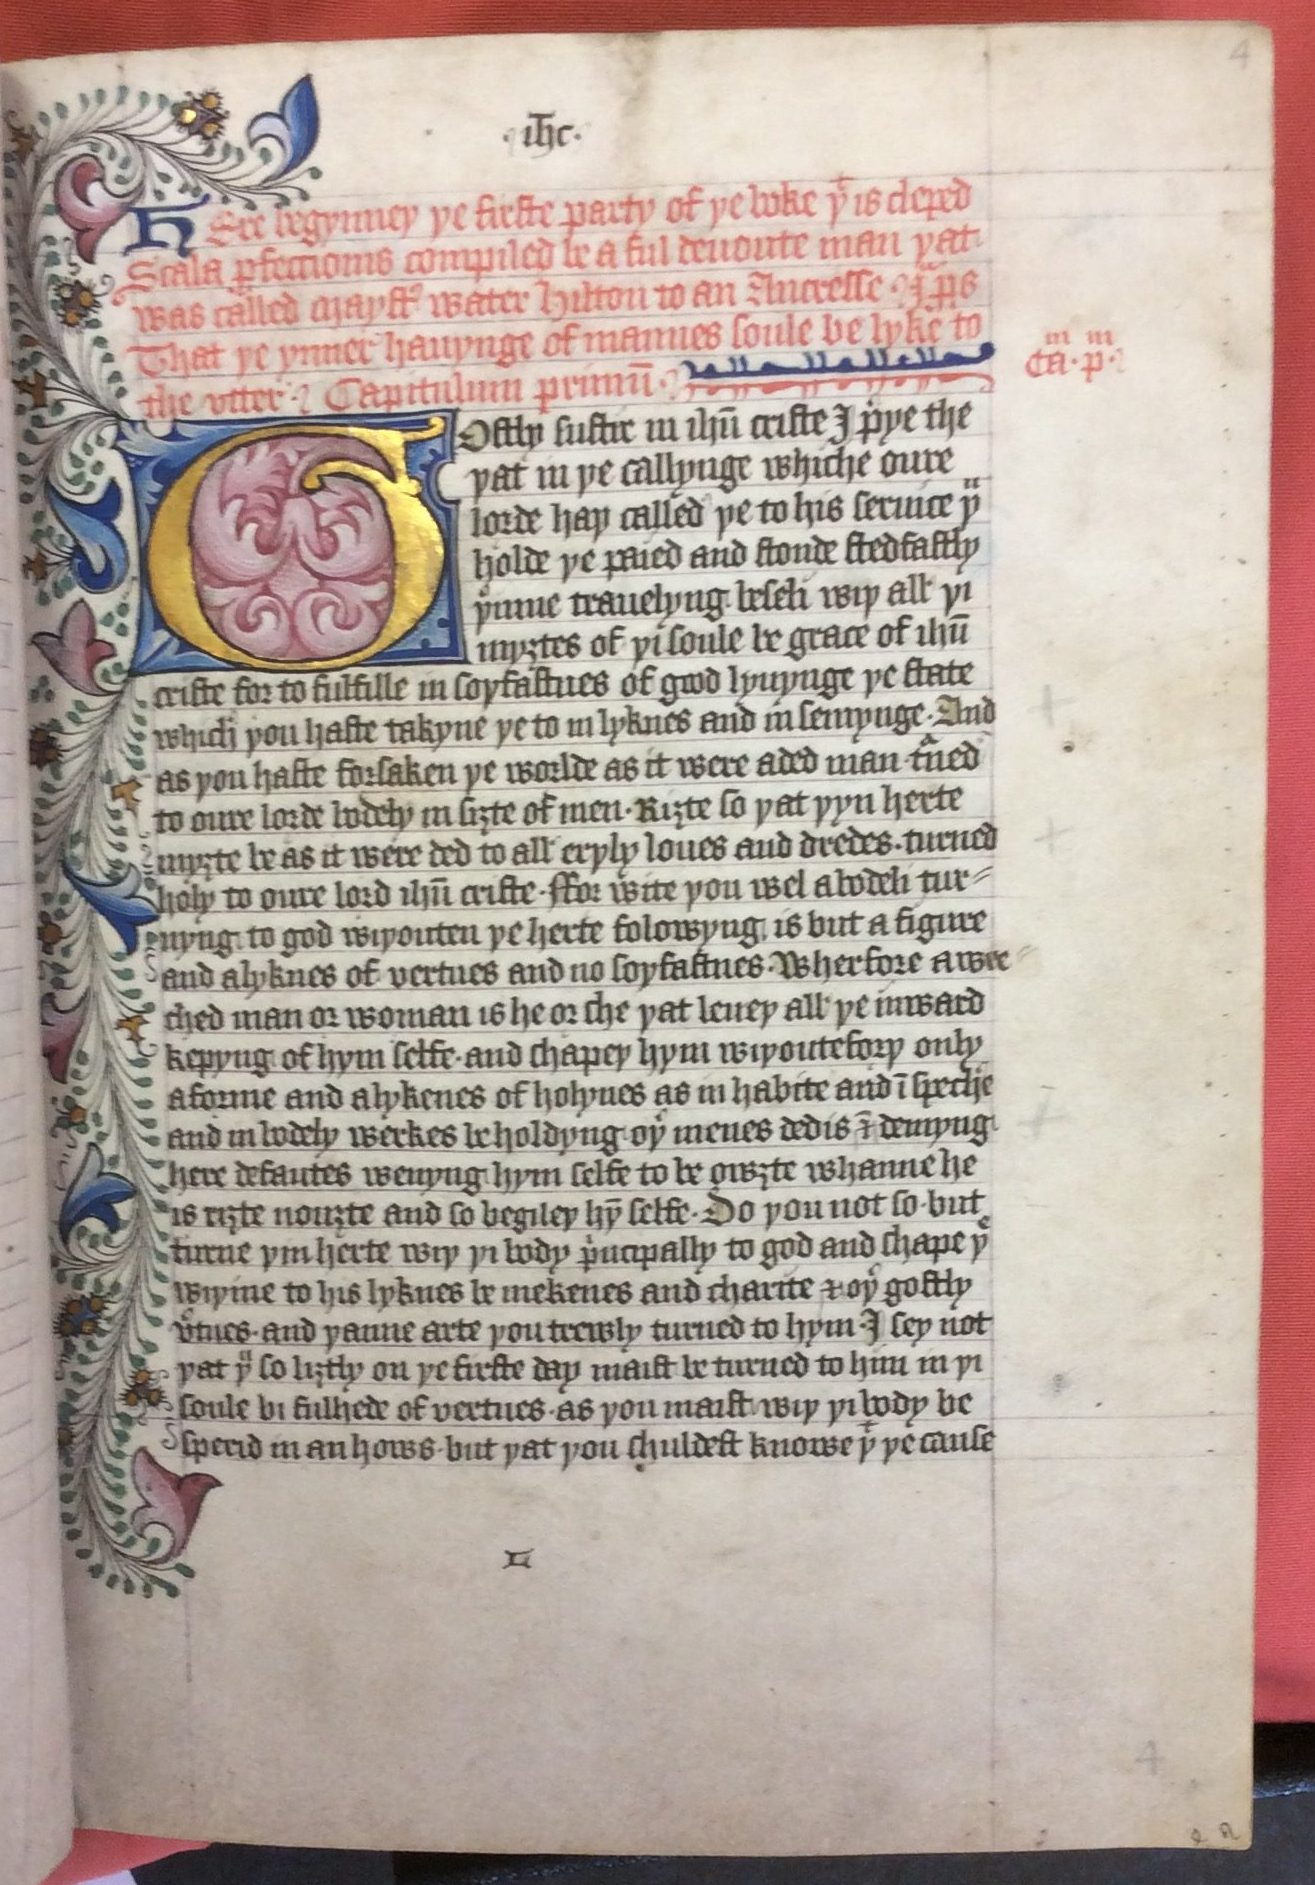 4
·ihc·
HEre begynney ye firste party of ye boke yͭ is cleped
Scala ꝑfectionis compiled be a ful deuoute man yat
was called maystʳ water hilton to an Ancresse ·
That ye ynner hauynge of mannes soule be lyke to
the vtter · Capitulum primū ·
Ca.ᵐ p.ᵐ
GOstly suster in ihū criste I pͥye the
yat in ye callynge whiche oure
lorde hay called ye to his seruice yͧ
holde ye paied and stonde stedfastly
yͬinne trauelyng beseli wiy all yi
myȝtes of yi soule be grace of ihū
criste for to fulfille in soyfastnes of good lyuynge ye state
which you haste takyne ye to in lyknes and in semynge · And
as you haste forsaken ye worlde as it were aded man tᷓned
to oure lorde bodely in siȝte of men · Riȝte so yat yyn herte
myȝte be as it were ded to all eryly loues and dredes · turned
holy to oure lord ihū criste · ffor wite you wel a bodeli tur⸗
nyng to god wiyouten ye herte folowyng is but a figure
and alyknes of vertues and no soyfastnes · Wherfore a wrec
ched man or woman is he or she yat leuey all ye inward
kepyng of hym selfe · and shapey hym wiyoutefory only
a forme and alykenes of holynes as in habite and ī speche
and in bodely werkes beholdyng oyͬ menes dedis ⁊ demyng
here defautes wenyng hym selfe to be owȝte whanne he
is riȝte nouȝte and so begiley hȳ selfe · Do you not so · but
turne yin herte wiy yi body pͥncipally to god and shape yͤ
wiyine to his lyknes be mekenes and charite ⁊ oyͬ gostly
vͬtues · and yanne arte you trewly turned to hym · I sey not
yat yͧ so liȝtly on ye firste day maist be turned to him in yi
soule bi fulhede of vertues · as you maist wiy yi body be
sperid in an hows · but yat you shuldest knowe yͭ ye cause
4